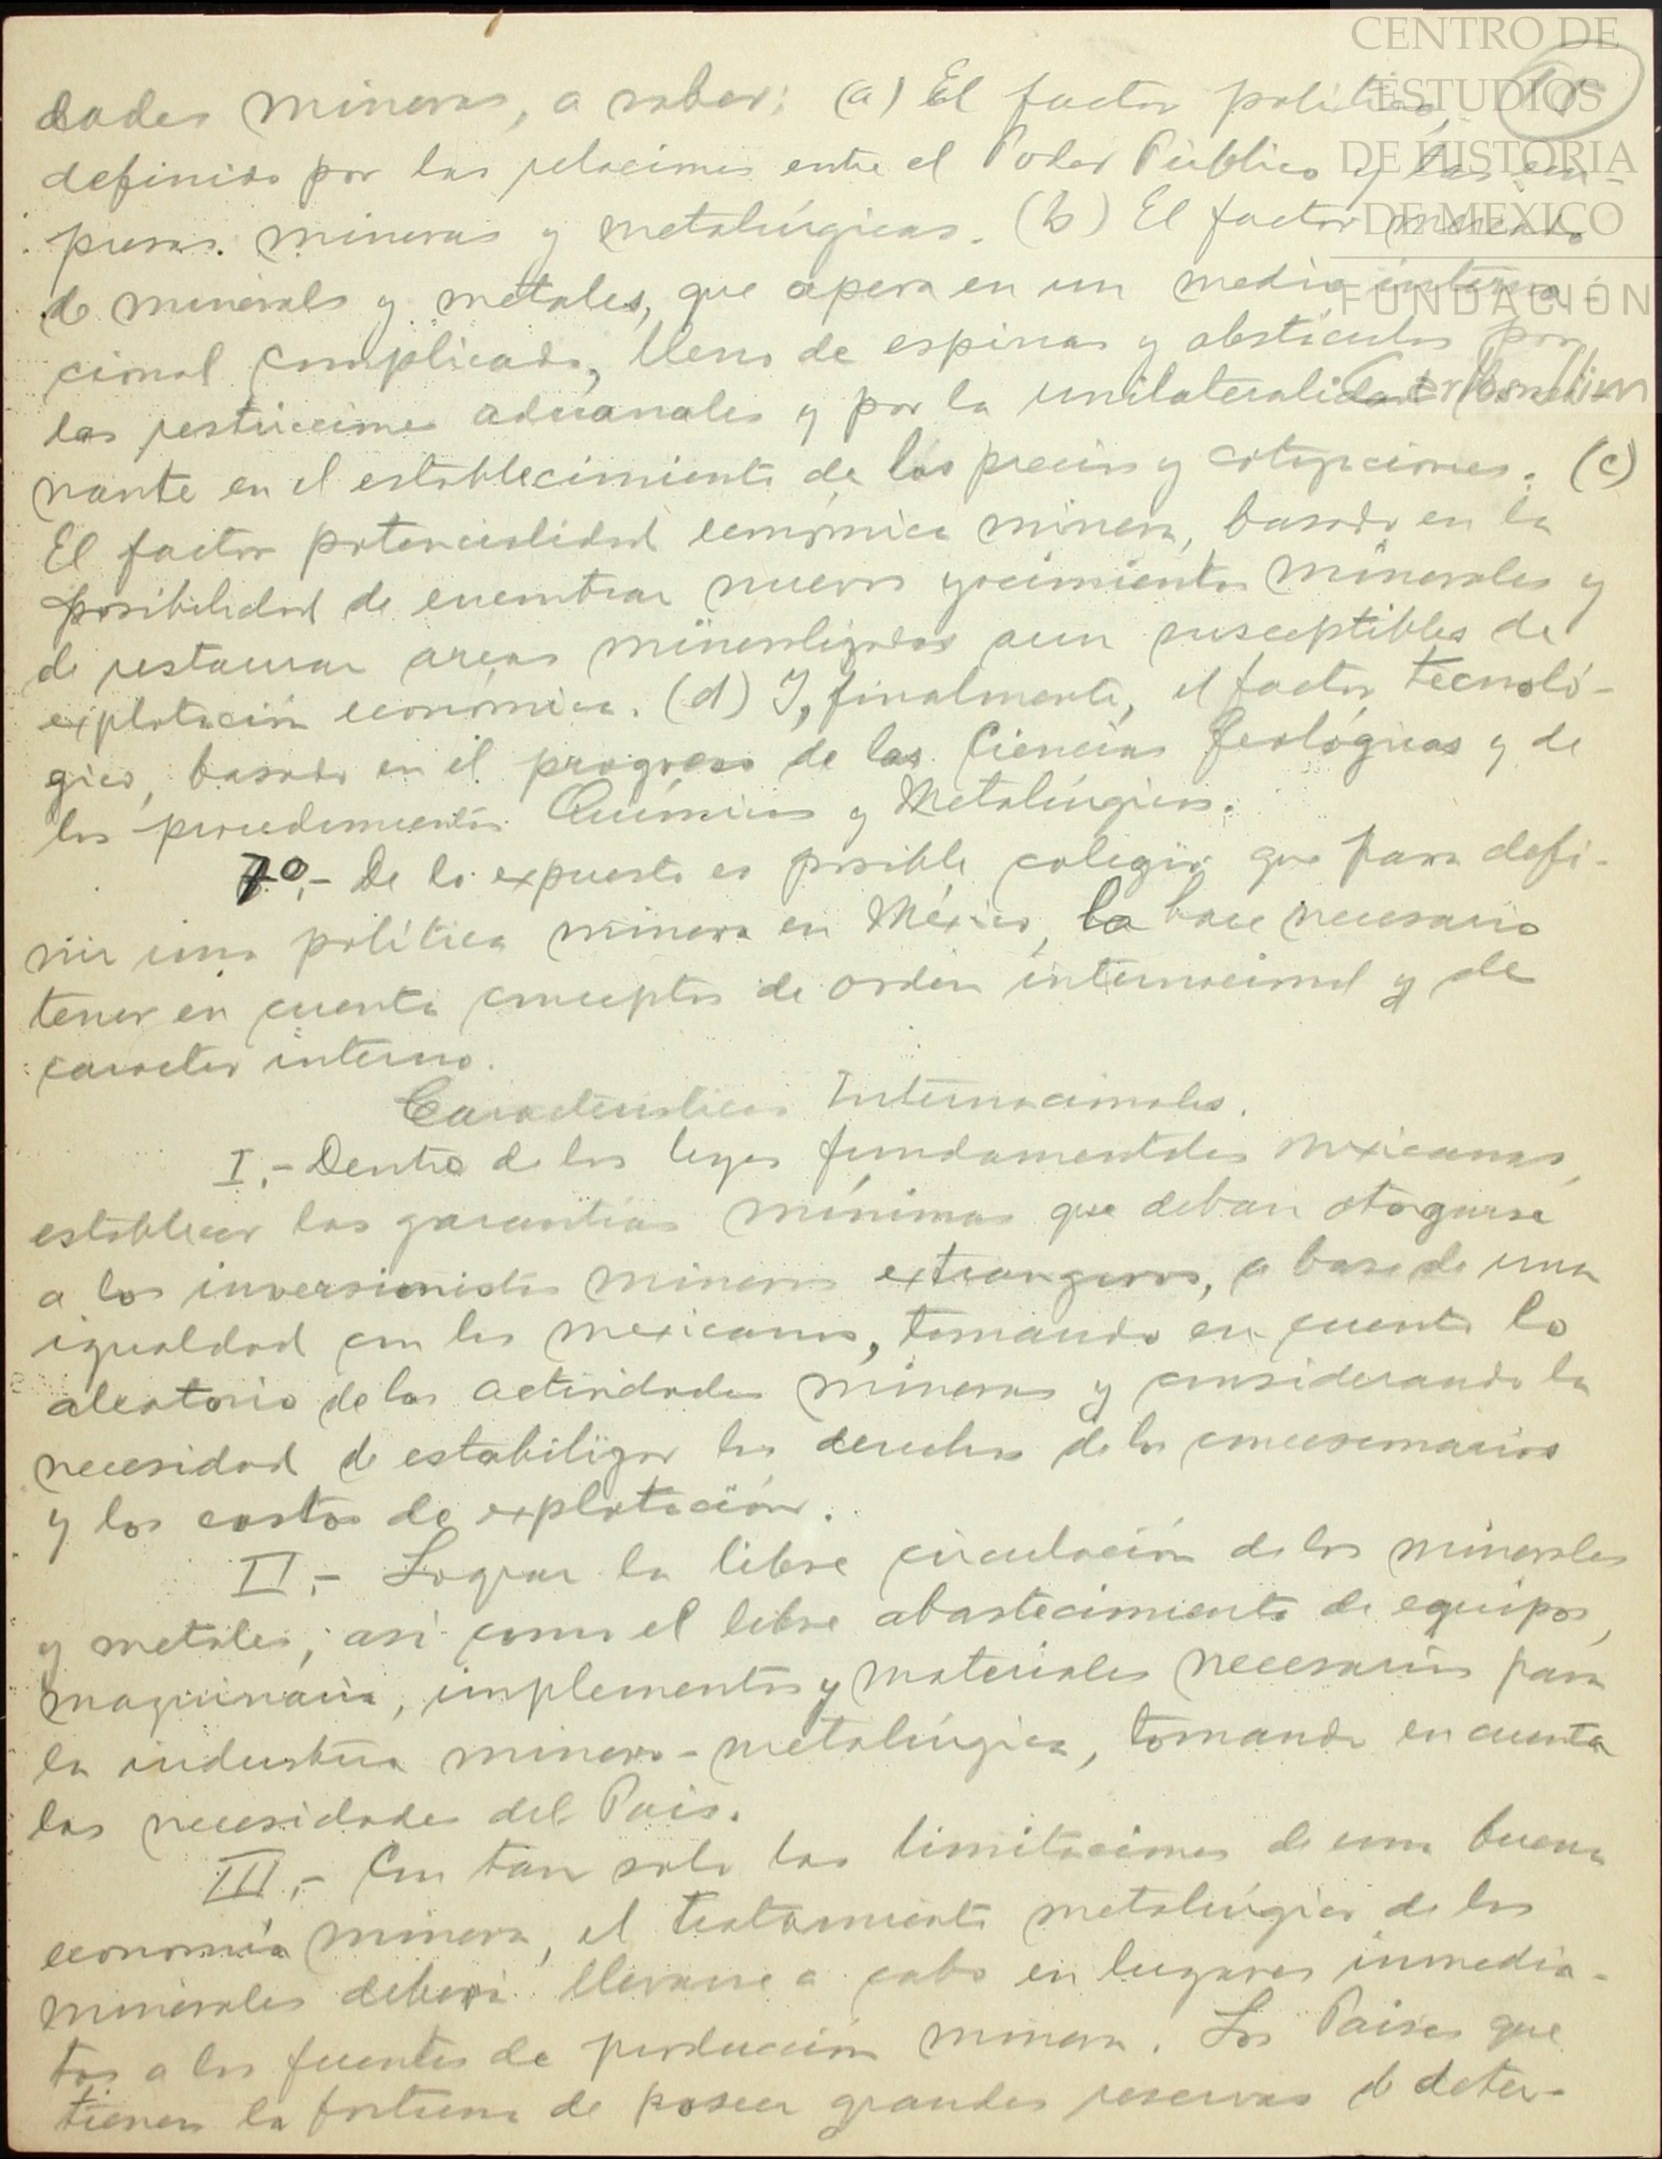 CENTRO DE
ESTUDIOS
DE HISTORIA
DE MEXICO
FUNDACIÓN
dades mineras, a saber: (a) El factor político,
definido por las relaciones entre el Poder Público y las em-
presas mineras y metalúrgicas. (b) El factor mercado
de minerales y metales, que opera en un medio interna-
cional complicado, lleno de espinas y obstáculos por
las restricciones aduanales y por la unilateralidad
nante en el establecimiento de los precios y cotizaciones. (c)
El factor potencialidad económica minera, basado en la
posibilidad de encontrar nuevos yacimientos minerales y
de restaurar areas mineralizadas aun susceptibles de
explotación económica. (d) Y, finalmente, el factor tecnoló-
gico, basado en el progreso de las Ciencias Geológicas y de
los procedimientos Químicos y Metalúrgicos.
7º.- De lo expuesto es posible colegir que para defi-
nir una política minera en México, la hace necesario
tener en cuenta conceptos de orden internacional y de
caracter interno.
Características Internacionales.
I.- Dentro de las leyes fundamentales mexicanas,
establecer las garantías mínimas que deban otorgarse
a los inversionistas mineros extrangeros, a base de una
igualdad con los mexicanos, tomando en cuenta lo
aleatorio de las actividades mineras y considerando la
necesidad de estabilizar los derechos de los concesionarios
y los costos de explotación.
II.- Lograr la libre circulación de los minerales
y metales, así como el libre abastecimiento de equipos,
maquinaria, implementos y materiales necesarios para
la industria minero-metalúrgica, tomando en cuenta
las necesidades del Pais.
III.- Con tan solo las limitaciones de una buena
economía minera, el tratamiento metalúrgico de los
minerales deberá llevarse a cabo en lugares inmedia-
tos a las fuentes de producción minera. Los Paises que
tienen la fortuna de poseer grandes reservas de deter-